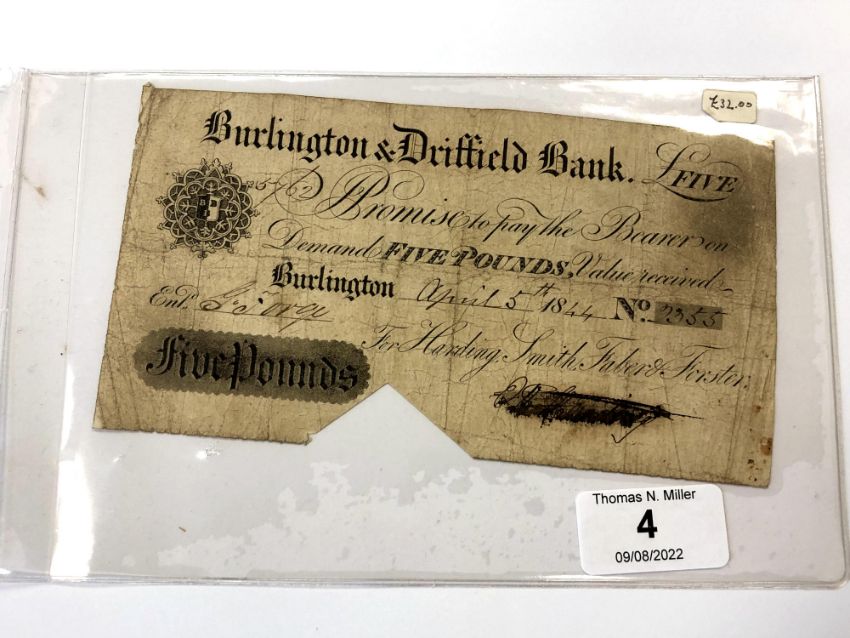 £32.00
Burlington & Driffield Bank. £FIVE
I Promise to pay the Bearer on
Demand FIVE POUNDS, Value received
Burlington April 5th 1844 No. 2355
Entd.
Five Pounds
For Harding Smith, Faber & Forster.
Thomas N. Miller
4
09/08/2022